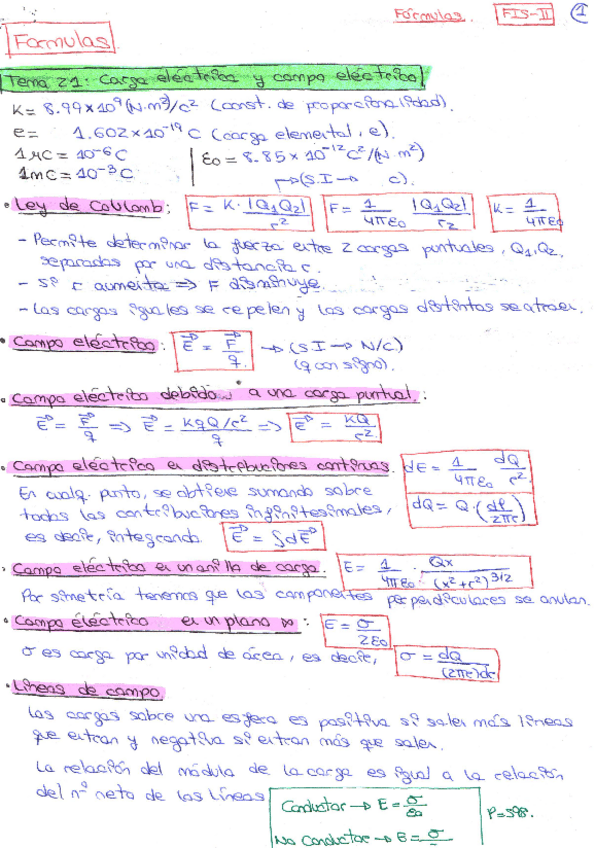 Fórmulas FIS-II 1
Fórmulas
Tema 21: Carga eléctrica y campo eléctrico
K = 8.99×10⁹ (N·m²)/c² (const. de proporcionalidad).
e = 1.602×10⁻¹⁹ C (carga elemental, e).
1μC = 10⁻⁶ C | ε₀ = 8.85×10⁻¹² C²/(N·m²)
1mC = 10⁻³ C →(S.I → C).
• Ley de Coulomb: F = K·|Q₁Q₂|/r² F = 1/4πε₀ |Q₁Q₂|/r₂ K = 1/4πε₀
- Permite determinar la fuerza entre 2 cargas puntuales, Q₁,Q₂, 
separadas por una distancia r.
- Si r aumenta ⇒ F disminuye.
- Las cargas iguales se repelen y las cargas distintas se atraen.
• Campo eléctrico: E⃗ = F⃗/q. → (S I → N/C)
(q con signo).
• Campo eléctrico debido a una carga puntual:
E⃗ = F⃗/q ⇒ E⃗ = KqQ/r²/q ⇒ E⃗ = KQ/r².
• Campo eléctrico en distribuciones continuas. dE = 1/4πε₀ dQ/r².
En cualq. punto, se obtiene sumando sobre dQ = Q·(dl/2πr)
todas las contribuciones infinitesimales,
es decir, integrando. E⃗ = ∫dE⃗
• Campo eléctrico en un anillo de carga. E = 1/4πε₀ · Qx/(x²+r²)^3/2
Por simetría tenemos que las componentes perpendiculares se anulan.
• Campo eléctrico en un plano ∞: E = σ/2ε₀
σ es carga por unidad de área, es decir, σ = dQ/(2πr)dr
• Líneas de campo
Las cargas sobre una esfera es positiva si salen más líneas
que entran y negativa si entran más que salen.
La relación del módulo de la carga es igual a la relación
del nº neto de las líneas
Conductor → E = σ/ε₀ P=598.
No Conductor → E = σ